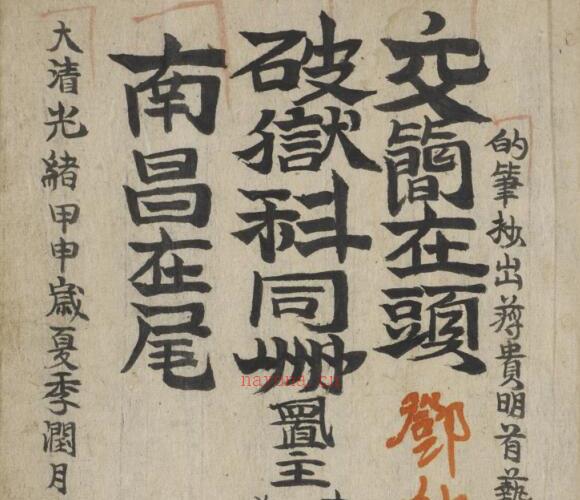 的筆抄出尊貴明首藝
交簡在頭
鄧
破獄科同置主
南昌在尾
大清光緒甲申歲夏季潤月
nayona.cn